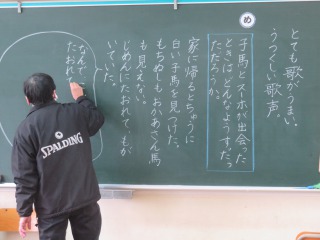 とても歌がうまい。
うつくしい歌声。
め
子馬とスーホが出会った
ときは、どんなようすだっ
ただろうか。
家に帰るとちゅうに
白い子馬を見つけた。
もちぬしもおかあさん馬
も見えない。
じめんにたおれて、もが
いていた。
なんで
たおれ
SPALDING